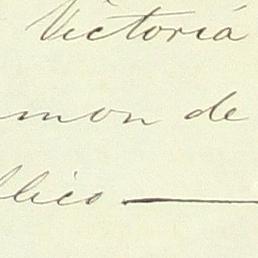 Victoria
mon de
blico